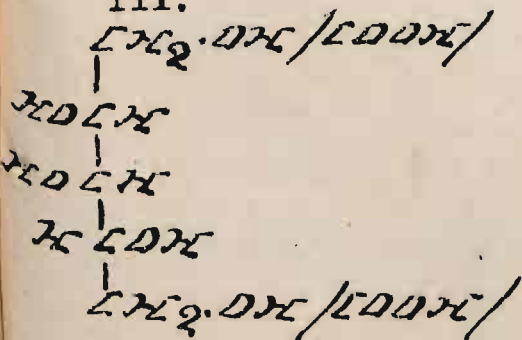 III.
CH2·OH/COOH/
HOCH
HOCH
HCOH
CH2·OH/COOH/